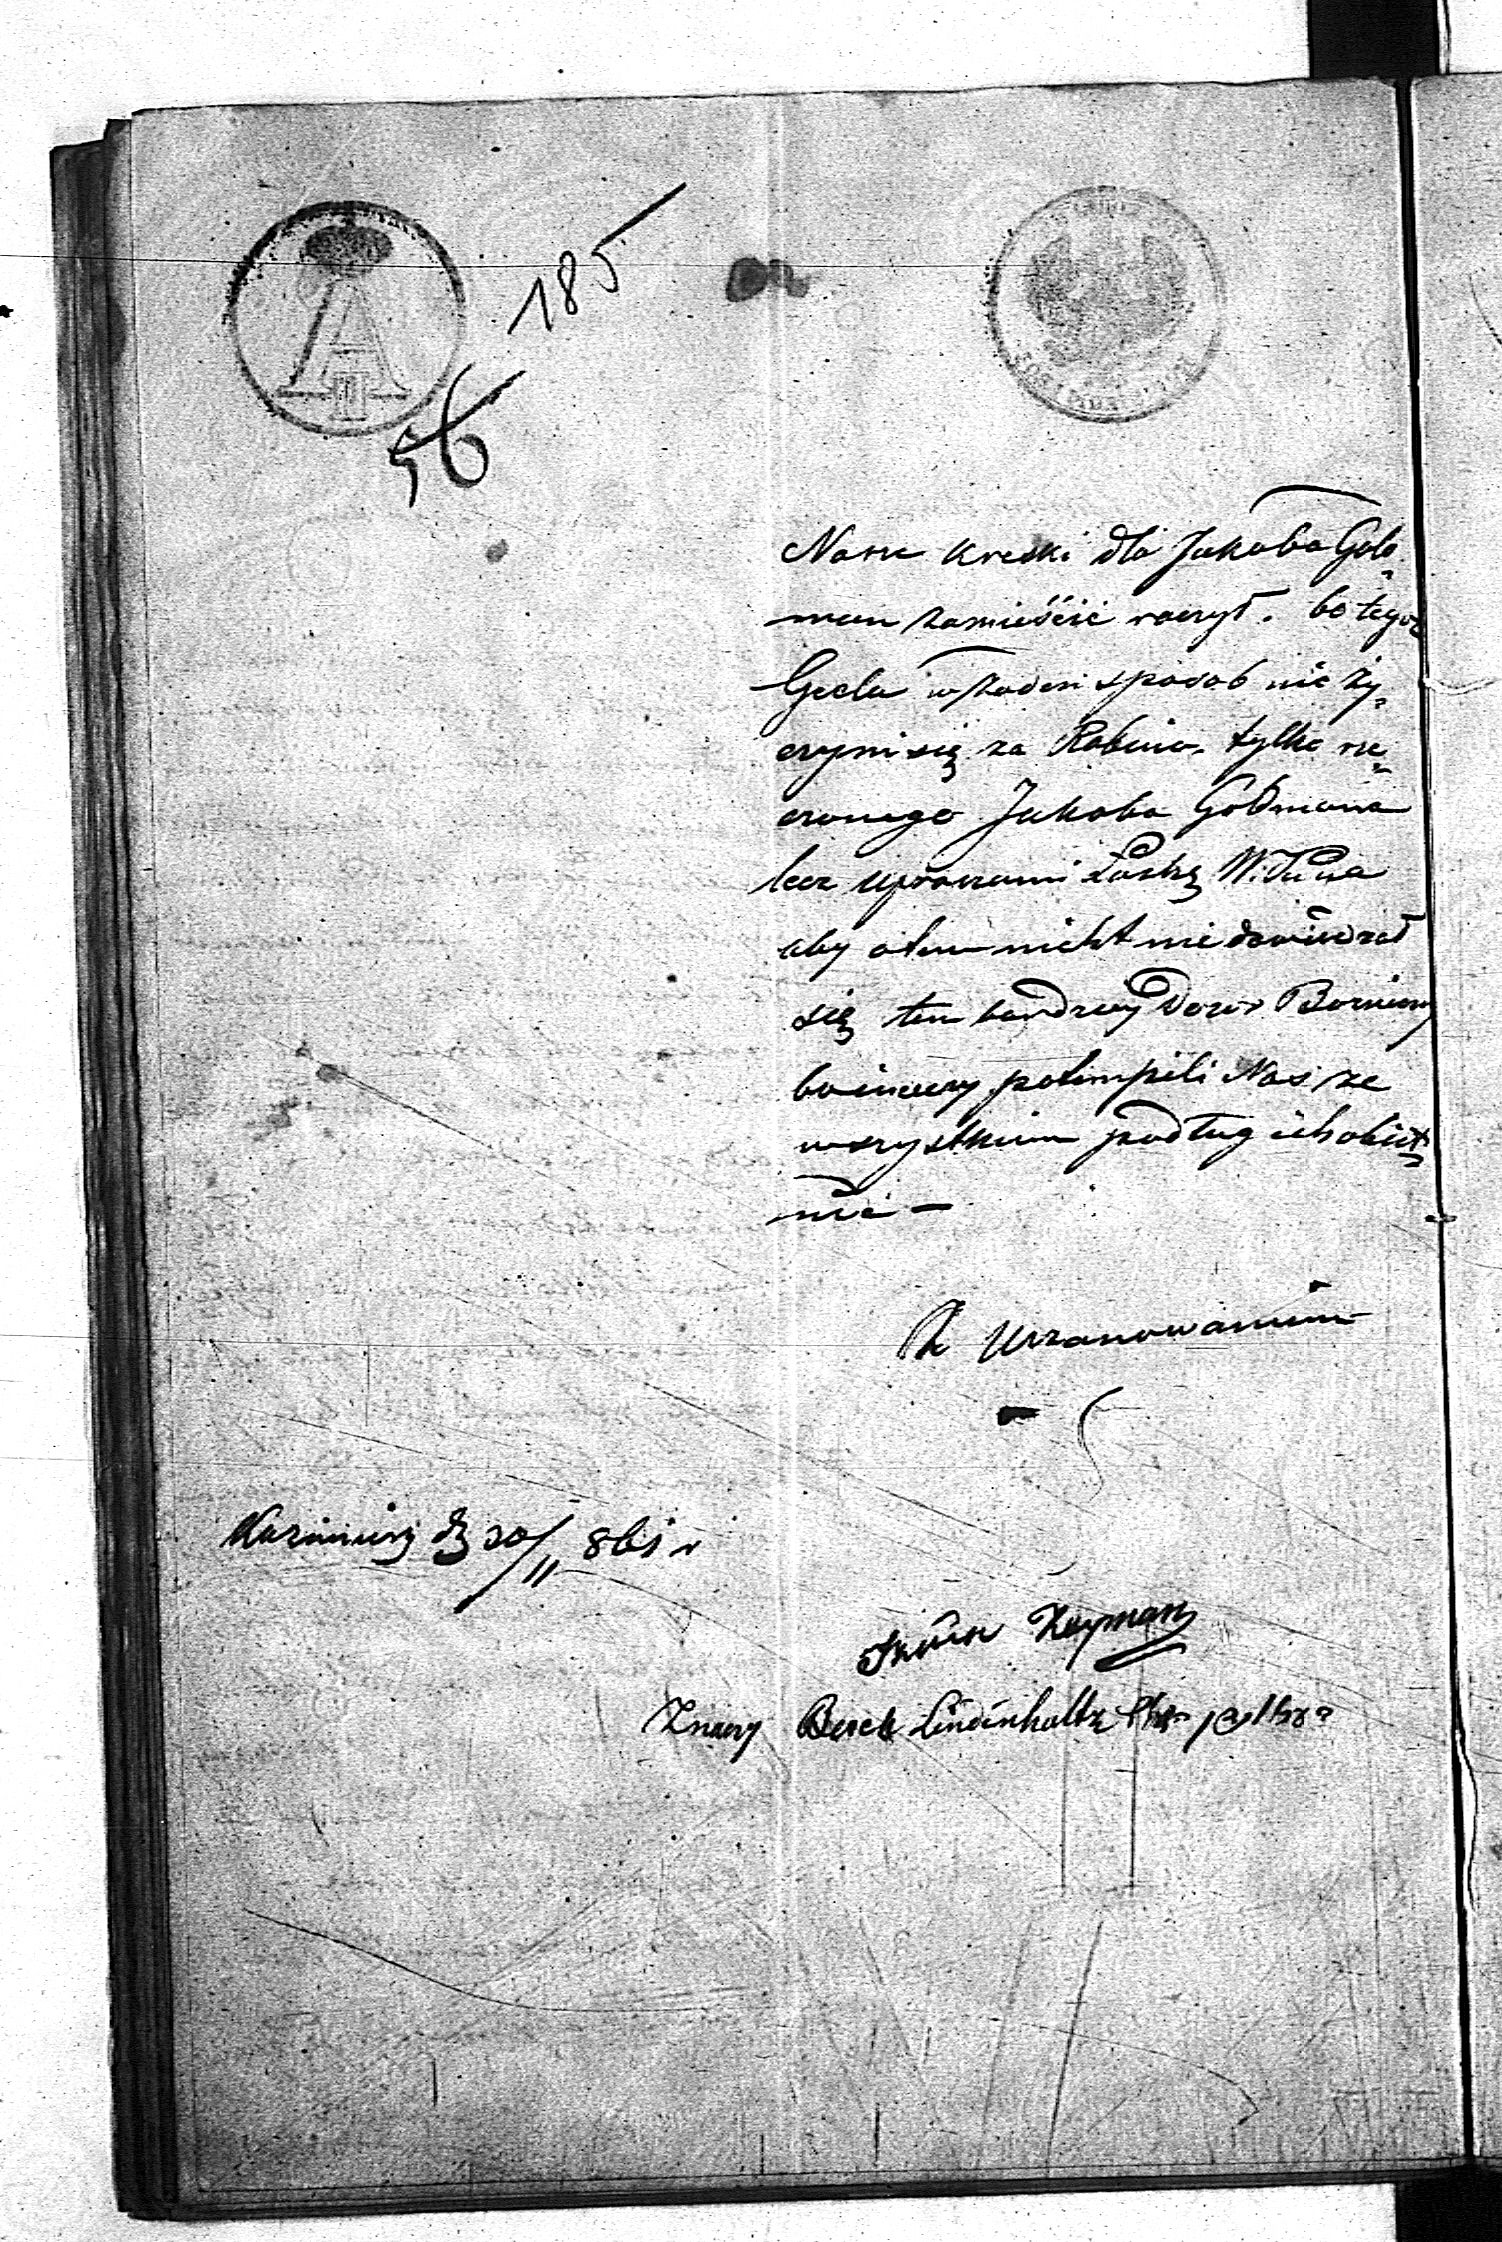 185
56
Nasze kreski dla Jakoba Gold„
man zamieścić raczył. bo tegoż
Gecla w żaden sposób nie ży„
czymi się za Rabina. tylko rze„
czonego Jakoba Goldmana
lecz upraszami Łaskę W. Pana
aby o tem nicht nie dowiedzał
się ten bardzey Dozor Bożniczy
bo inaczy potempili Nas ze
wszystkiem podług ich obiet„
nice —
Z Uszanowaniem
Kazimierz d 20/11 861 r
Hayman
Znaczy Berek Lindenholtz